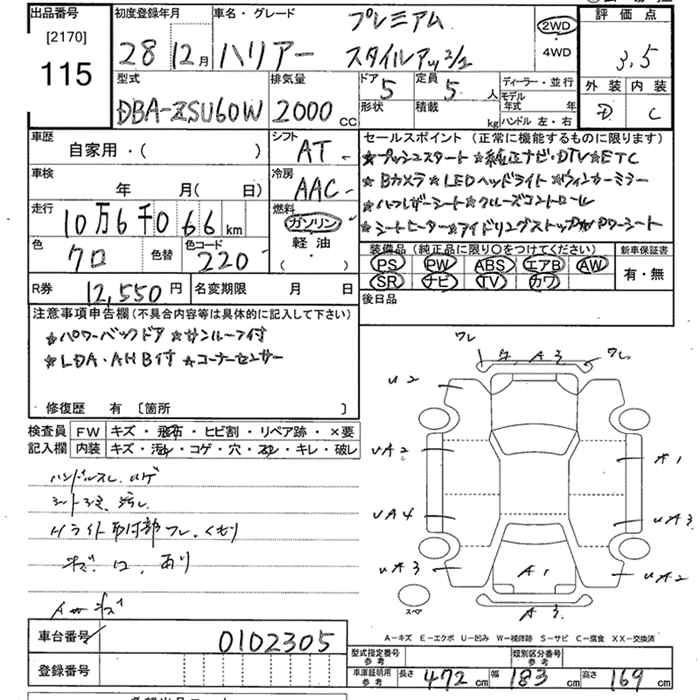 出品番号 初度登録年月 車名・グレード プレミアム 2WD 評価点
[2170] 115 28 12月 ハリアー スタイルアップ 2/2 4WD 3.5
型式 排気量 ドア 5 定員 5人 ディーラー・並行 外装 内装
DBA-ZSU60W 2000CC 形状 積載 kg モデル年式 年 D C
ハンドル 左・右
車歴 シフト セールスポイント (正常に機能するものに限ります)
自家用・( ) AT
☆プッシュスタート☆純正ナビ・DTV☆ETC
車検 冷房
☆Bカメラ☆LEDヘッドライト☆ウィンカーミラー
年 月( 日) AAC
☆ハーフレザーシート☆クルーズコントロール
走行 燃料
10万6千066km ガソリン
☆シートヒーター☆アイドリングストップ パワーシート
色 色替 色コード 軽油
装備品(純正品に限り〇をつけてください) 新車保証書
クロ 220 ・( )
PS PW ABS エアB AW 有・無
R券 12,550円 名変期限 月 日
SR ナビ TV カワ
後日品
注意事項申告欄(不具合内容等は具体的に記入して下さい)
☆パワーバックドア ☆サンルーフ付
☆LDA・AHB付 ☆コーナーセンサー
修復歴 有 〔箇所 〕
検査員 FW キズ・飛石・ヒビ割・リペア跡・×要
記入欄 内装 キズ・汚れ・コゲ・穴・スレ・キレ・破レ
ハンドルスレ、ハゲ
シートシミ、汚レ
Hライト取付部ワレ、くもり
キズ、凹、あり
ワレ A3 ワレ
U2
UA2 A1
UA4 UA3
UA3 A1 UA2
スペア A3
A-キズ E-エクボ U-凹み W-補修跡 S-サビ C-腐食 XX-交換済
車台番号 0102305
型式指定番号 参考 類別区分番号 参考
登録番号
車庫証明用 参考 長さ 472cm 幅 183cm 高さ 169cm